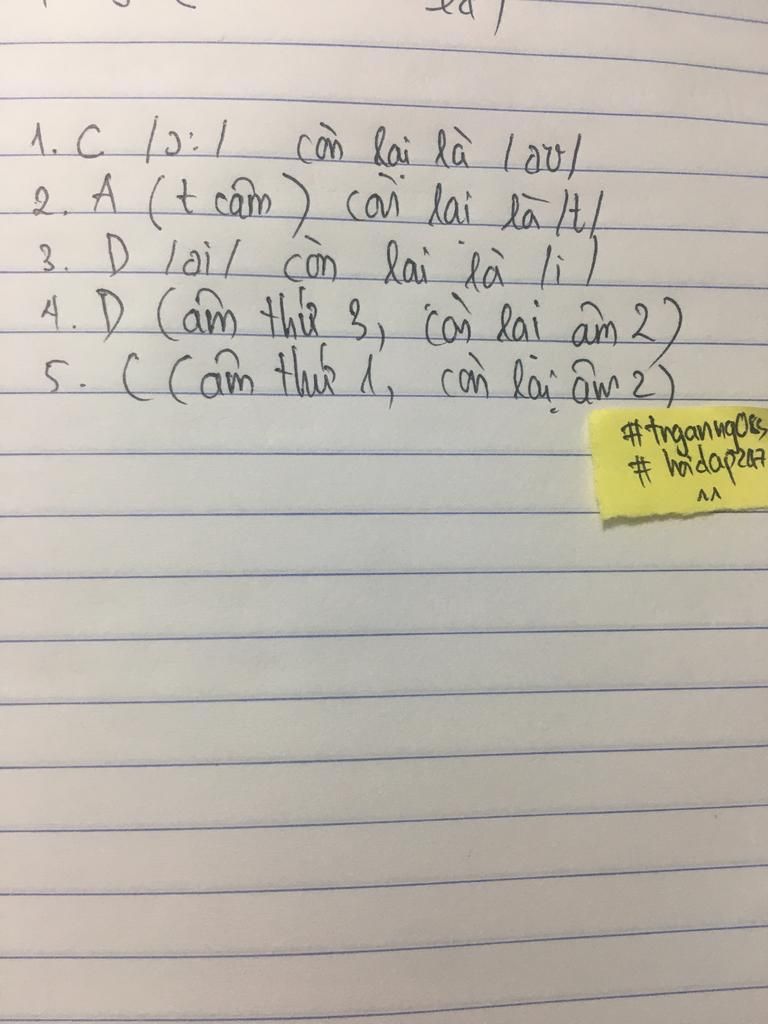 1. C /ɔ:/ còn lại là /əʊ/
2. A (t câm) còn lại là /t/
3. D /ai/ còn lại là /i/
4. D (âm thứ 3, còn lại âm 2)
5. C (âm thứ 1, còn lại âm 2)
#tngannq085
# hoidap247
^^